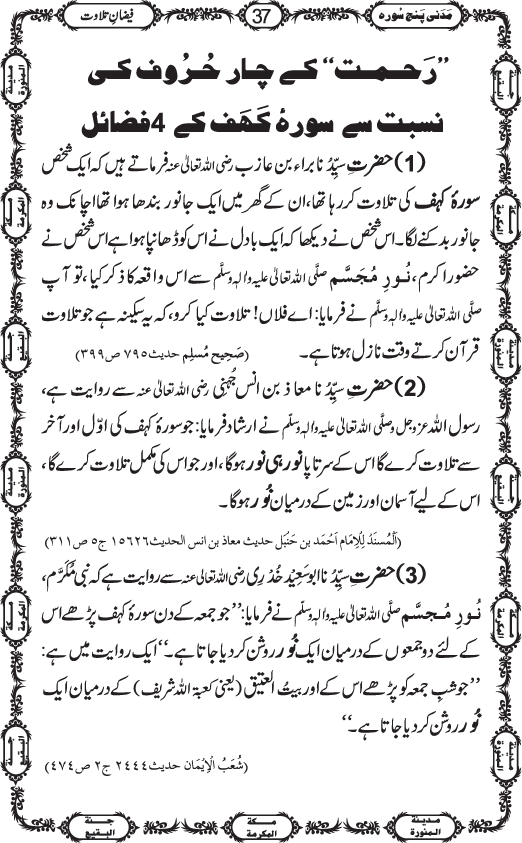 مَدَنی پَنج سُورہ 37 فیضانِ تلاوت
’’رَحمت‘‘ کے چار حُرُوف کی
نسبت سے سورۂ کَہَف کے 4 فضائل
(1) حضرتِ سیِّدُنا براء بن عازب رضی اللہ تعالیٰ عنہ فرماتے ہیں کہ ایک شخص
سورۂ کہف کی تلاوت کررہا تھا، ان کے گھر میں ایک جانور بندھا ہوا تھا اچانک وہ
جانور بدکنے لگا۔ اس شخص نے دیکھا کہ ایک بادل نے اس کو ڈھانپا ہوا ہے اس شخص نے
حضور اکرم، نُورِ مُجَسَّم صلَّی اللہ تعالیٰ علیہ واٰلہٖ وسلَّم سے اس واقعہ کا ذکر کیا، تو آپ
صلَّی اللہ تعالیٰ علیہ واٰلہٖ وسلَّم نے فرمایا: اے فلاں! تلاوت کیا کرو، کہ یہ سکینہ ہے جو تلاوت
قرآن کرتے وقت نازل ہوتا ہے۔ (صَحِیح مُسلِم حدیث ۷۹۵ ص ۳۹۹)
(2) حضرتِ سیِّدُنا معاذ بن انس جُہَنی رضی اللہ تعالیٰ عنہ سے روایت ہے،
رسول اللہ عزوجل وصلَّی اللہ تعالیٰ علیہ واٰلہٖ وسلَّم نے ارشاد فرمایا: جو سورۂ کہف کی اوّل اور آخر
سے تلاوت کرے گا اس کے سر تا پا نور ہی نور ہوگا، اور جو اس کی مکمل تلاوت کرے گا،
اس کے لیے آسمان اور زمین کے درمیان نُور ہوگا۔
(اَلْمُسنَد لِلْاِمَام اَحْمَد بن حَنْبَل حدیث معاذ بن انس الحدیث ۱۵۶۲۶ ج ۵ ص ۳۱۱)
(3) حضرتِ سیِّدُنا ابو سَعِیْد خُدْرِی رضی اللہ تعالیٰ عنہ سے روایت ہے کہ نبی مُکَرَّم،
نُورِ مُجسَّم صلَّی اللہ تعالیٰ علیہ واٰلہٖ وسلَّم نے فرمایا: ’’جو جمعہ کے دن سورۂ کہف پڑھے اس
کے لئے دو جمعوں کے درمیان ایک نُور روشن کر دیا جاتا ہے۔‘‘ ایک روایت میں ہے:
’’جو شبِ جمعہ کو پڑھے اس کے اور بیتُ العتیق (یعنی کعبۃ اللہ شریف) کے درمیان ایک
نُور روشن کر دیا جاتا ہے۔‘‘
(شُعَبُ الْاِیْمَان حدیث ۲۴۴۴ ج ۲ ص ۴۷۴)
مدينة المنورة
مكة المكرمة
جنة البقيع
مدينة المنورة
مكة المكرمة
جنة البقيع
جنة البقيع
مكة المكرمة
مدينة المنورة
جنة البقيع
مكة المكرمة
مدينة المنورة
مدينة المنورة
مكة المكرمة
جنة البقيع